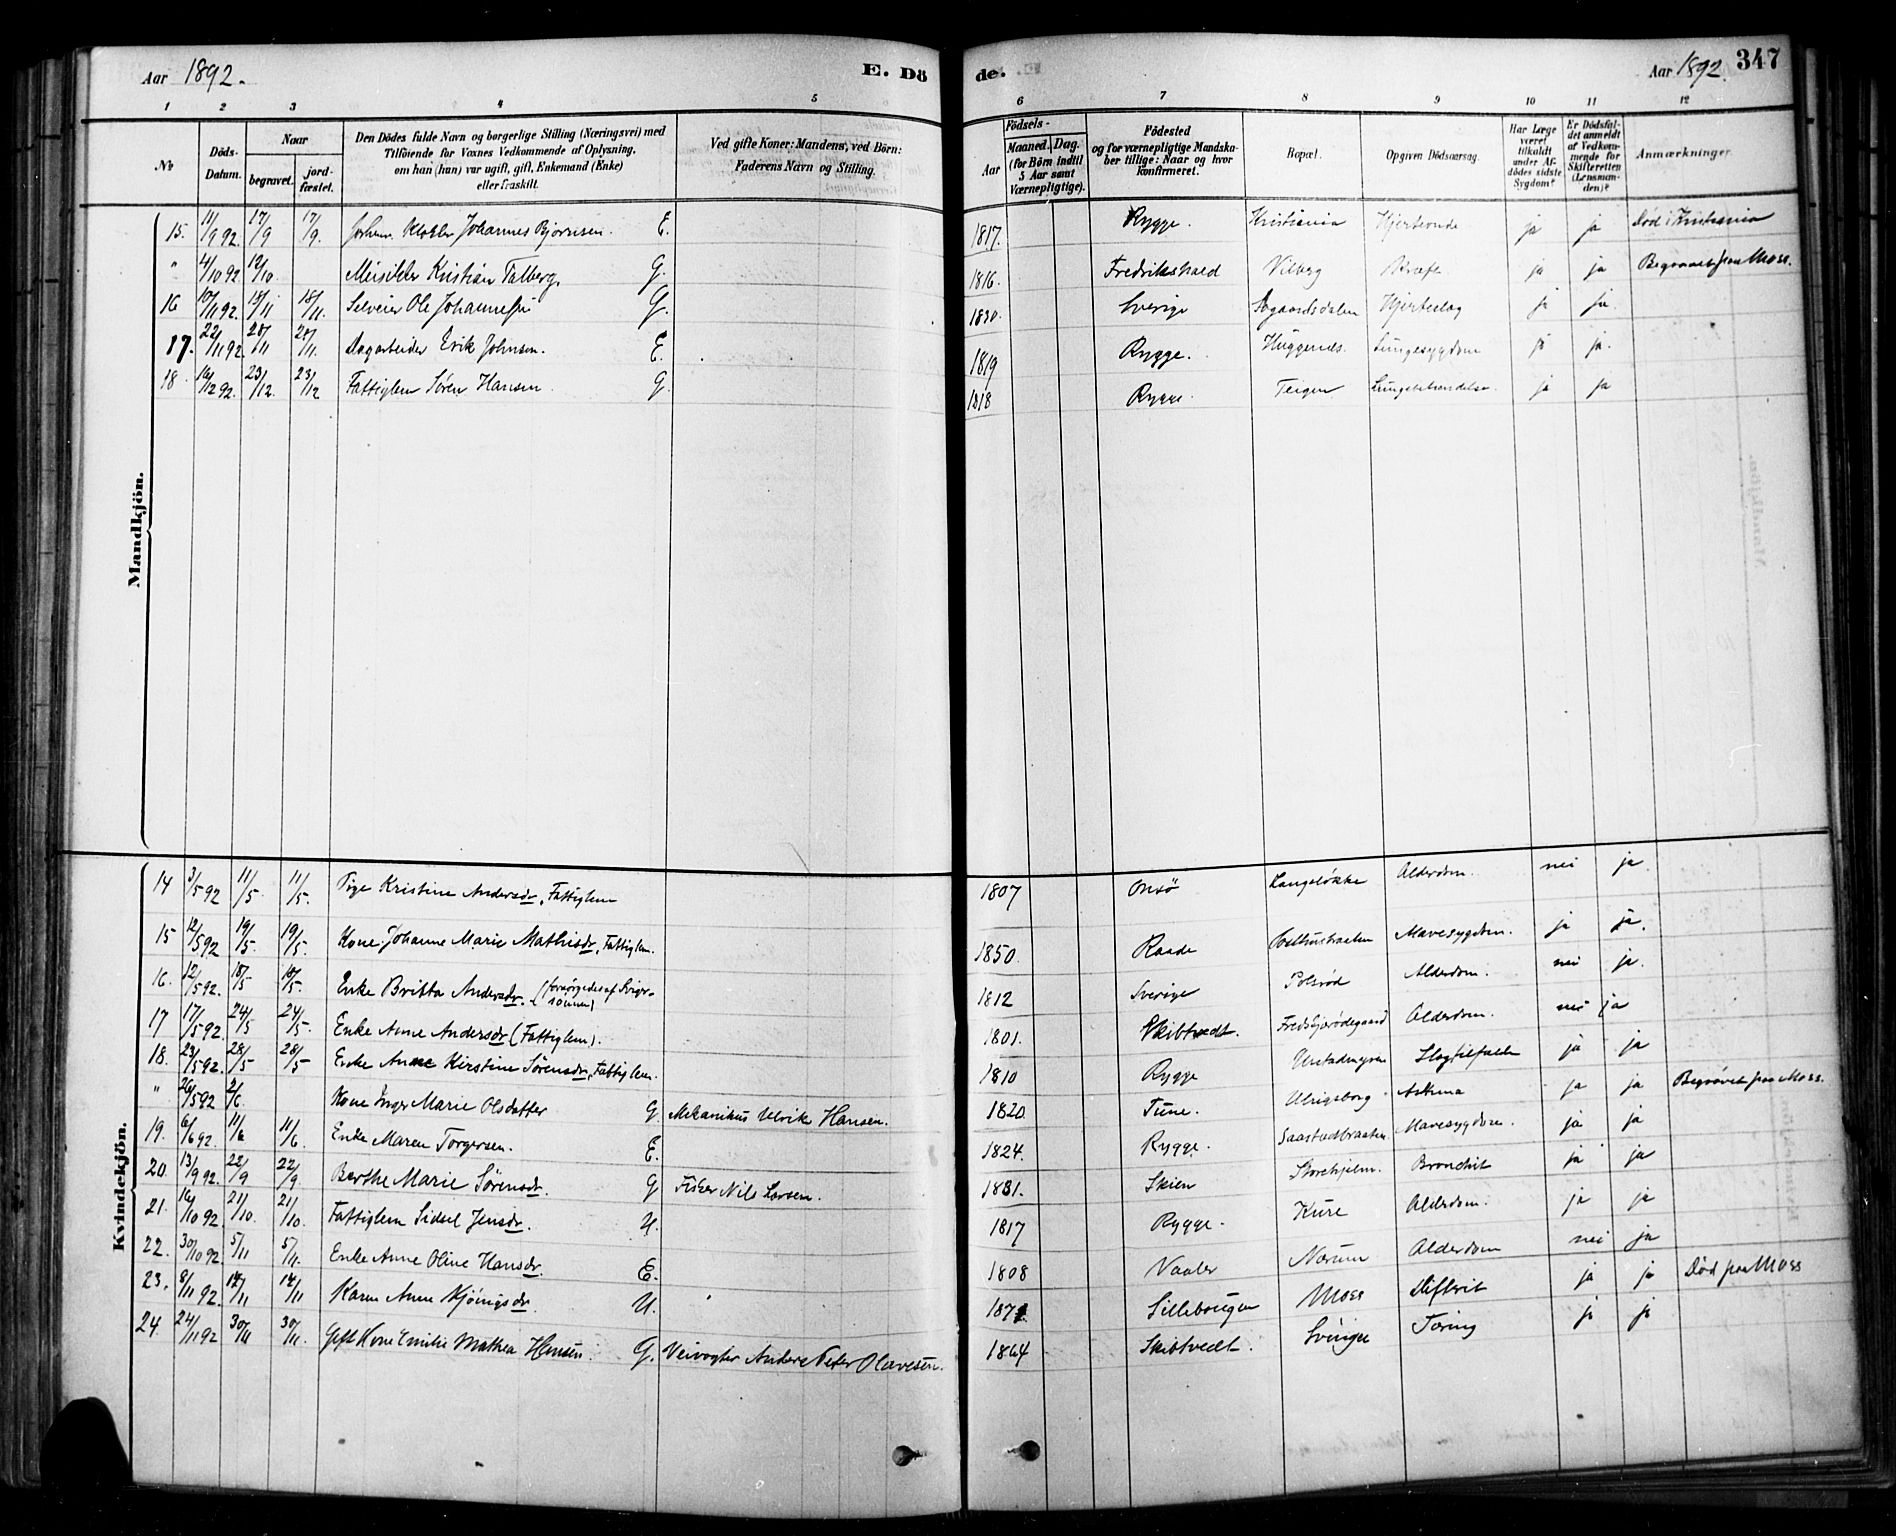 Aar 1892. E. Dö
de. Aar 1892. 347
1 2 3 4 5 6 7 8 9 10 11 12
No
Döds-Datum.
Naar
begravet.
jordfæstet.
Den Dödes fulde Navn og borgerlige Stilling (Næringsvei) med
Tilföiende for Voxnes Vedkommende af Oplysning,
om han (hun) var ugift, gift, Enkemand (Enke)
eller fraskilt.
Ved gifte Koner: Mandens, ved Börn:
Faderens Navn og Stilling.
Födsels-
Aar
Maaned. Dag.
(for Börn indtil
5 Aar samt
Værnepligtige).
Födested
og for værnepligtige Mandskaber
tillige: Naar og hvor
konfirmeret.
Bopæl.
Opgiven Dödsaarsag.
Har Læge
været
tilkaldt
under Afdödes
sidste
Sygdom?
Er Dödsfaldet
anmeldt
af Vedkommende
for
Skifteretten
(Lensmanden)?
Anmærkninger.
Mandkjön.
15. 11/9 92. 17/9 17/9. Johannes Bjørnsen. E. 1817. Rygge. Kristiania ja ja Død i Kristiania
" 4/10 92. 12/10. Kristian Talberg. G. 1816. Fredrikshald Vilberg Kræft ja ja Begravet paa Moss.
16 10/11 92. 18/11 18/11. Selveier Ole Johannessen G. 1830. Sverige Hjerteslag ja ja.
17. 22/11 92. 28/11 28/11. Dagarbeider Erik Johnsen. E. 1819 Rygge. Huggenæs. Lungesygdom ja ja.
18 16/12 92. 23/12. 23/12 Fattiglem Søren Hansen. G. 1818 Rygge. Teigen Lungebetændelse. ja ja
Kvindekjön.
14 3/5 92 11/5. 11/5. Pige Kristine Andersdr, Fattiglem 1807 Onsø Langeløkke Alderdom. nei ja.
15 12/5 92. 19/5. 19/5. Kone Johanne Marie Mathisdr, Fattiglem. 1850. Raade Mavesygdom. ja ja.
16. 12/5 92. 18/5 18/5. Enke Britta Andersdr. (forsørgedes af Svigersønnen) 1812 Sverige Polsrød Alderdom. nei ja.
17 17/5 92. 24/5 24/5. Enke Anne Andersdr (Fattiglem). 1801. Skibtvedt. Alderdom. nei ja
18. 23/5 92. 28/5 28/5 Enke Anne Kirstine Sørensdr, Fattiglem. 1810 Rygge Slagtilfælde ja ja
" 26/5 92 2/6. Kone Inger Marie Olsdatter G. Mekanikus Ulrik Hansen. 1820. Tune. Ulrigsborg. Asthma ja ja Begravet paa Moss.
19. 6/6 92. 11/6 11/6. Enke Maren Torgersen. E. 1824. Rygge. Saastadbraaten Mavesygdom. ja ja
20. 13/9 92. 22/9 22/9. Berthe Marie Sørensdr. G Fisker Nils Larsen. 1831. Skien Storehjelm. Bronchit ja ja
21. 16/10 92. 21/10. 21/10. Fattiglem Sidsel Jensdr. U. 1817 Rygge. Kure Alderdom. ja ja
22. 30/10 92. 5/11 5/11. Enke Anne Oline Hansdr. E. 1808 Vaaler Norum Alderdom nei ja
23. 8/11 92. 14/11 14/11 Karen Anne U. Moss Difterit ja ja Død paa Moss
24. 24/11 92 30/11 30/11. Gift Kone Emilie Mathea Hansen. G. Veivogter Anders Peter Olavesen. 1864 Skibtvedt. Svinger Tæring ja ja